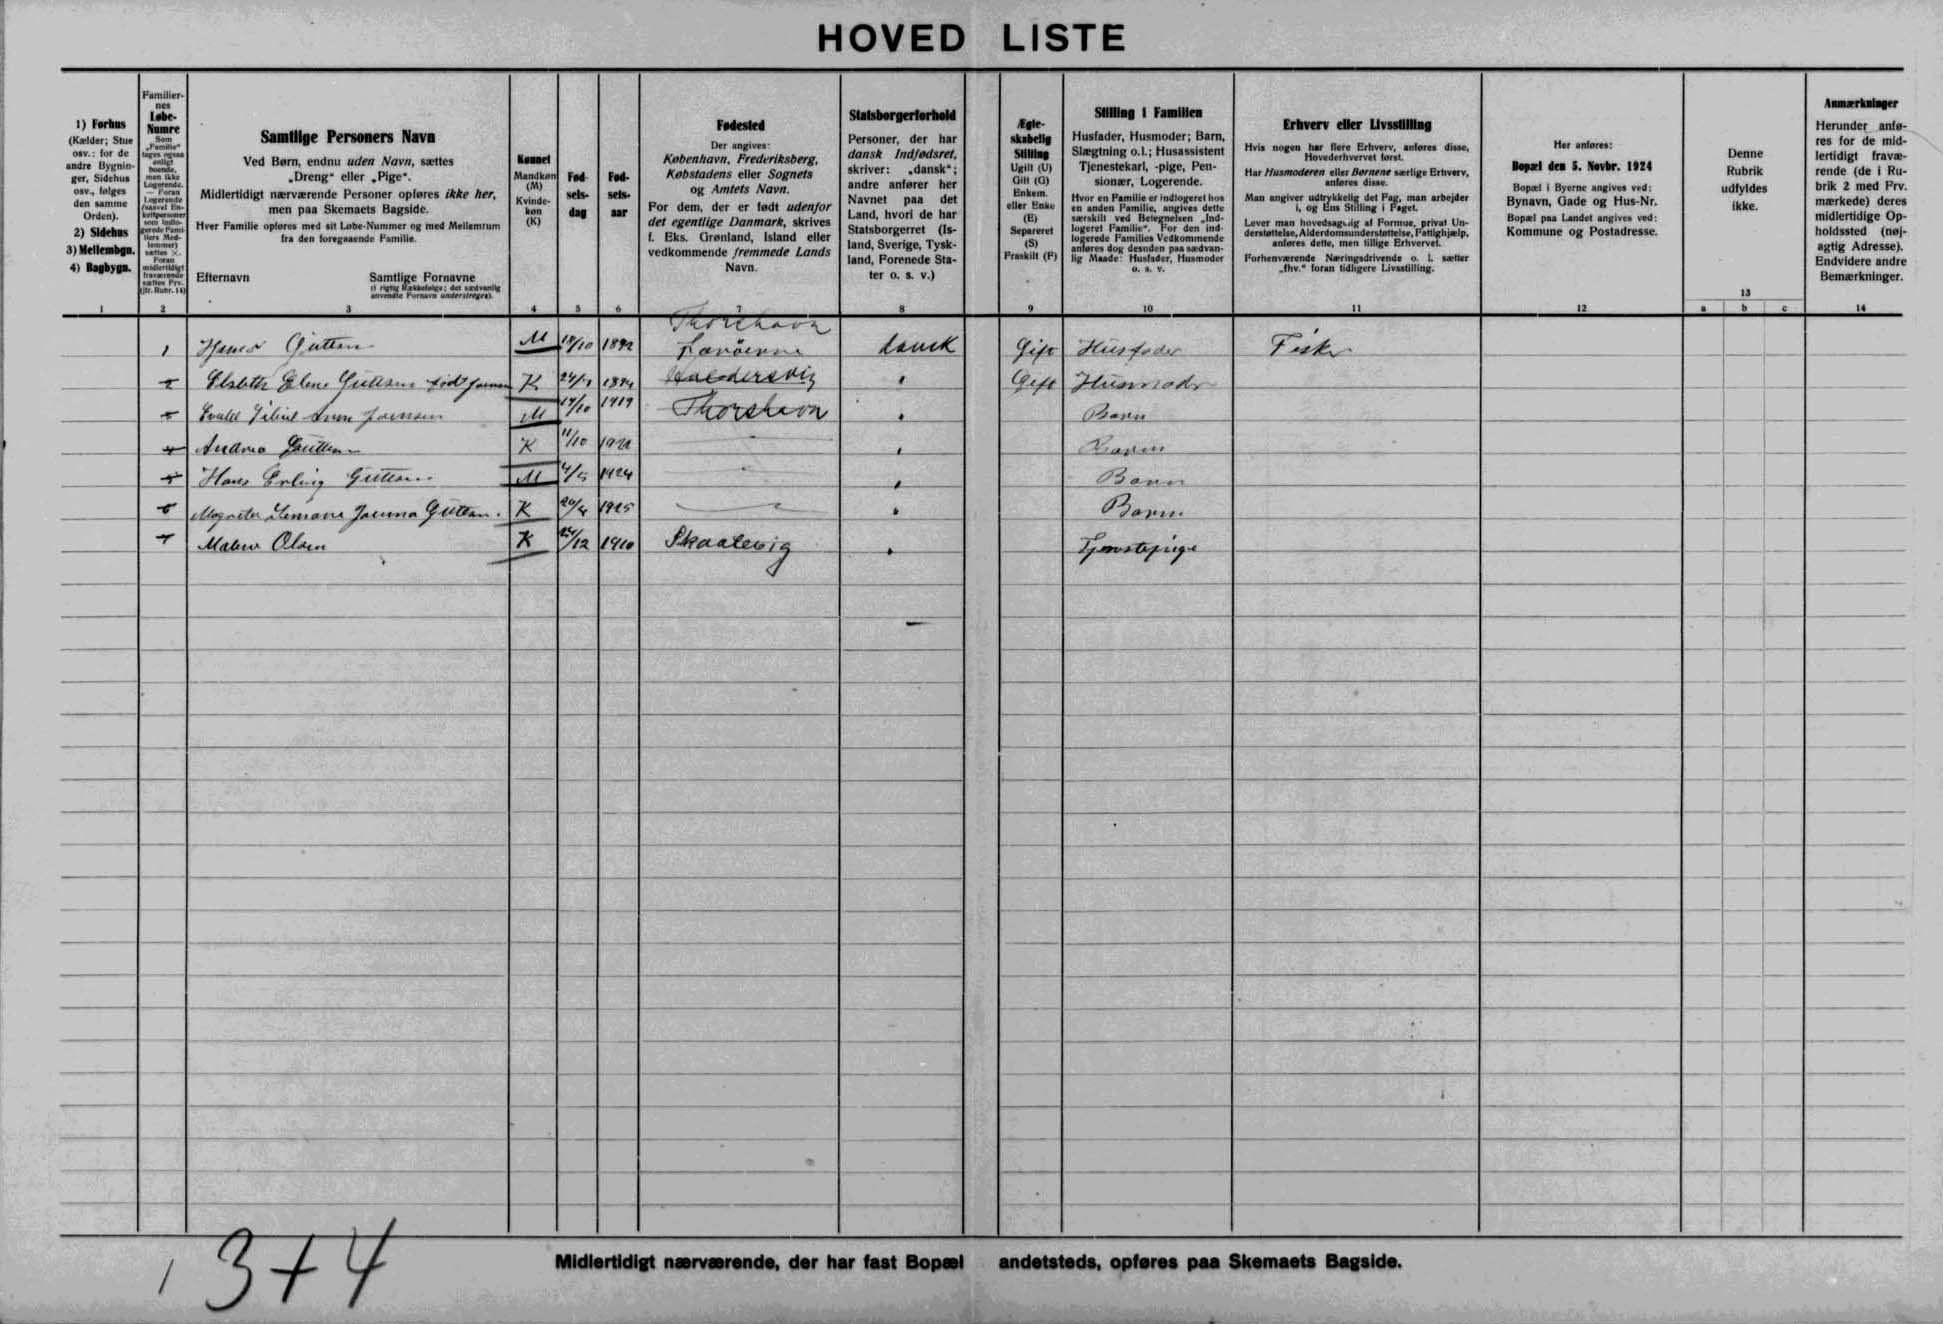 HOVED LISTE
1) Forhus
(Kælder; Stue
osv.: for de
andre Bygnin-
ger, Sidehus
osv., følges
den samme
Orden).
2) Sidehus
3) Mellembgn.
4) Bagbygn.
Familier-
nes
Løbe-
Numre
Som
„Familie"
tages ogsaa
enligt
boende,
men ikke
Logerende.
— Foran
Logerende
(saavel En-
keltpersoner
som indlo-
gerede Fami-
liers Med-
lemmer)
sættes ×.
Foran
midlertidigt
fraværende
sættes Frv.
(jfr. Rubr. 14)
Samtlige Personers Navn
Ved Børn, endnu uden Navn, sættes
„Dreng" eller „Pige".
Midlertidigt nærværende Personer opføres ikke her,
men paa Skemaets Bagside.
Hver Familie opføres med sit Løbe-Nummer og med Mellemrum
fra den foregaaende Familie.
Efternavn Samtlige Fornavne
(i rigtig Rækkefølge; det sædvanlig
anvendte Fornavn understreges).
Kønnet
Mandkøn
(M)
Kvinde-
køn
(K)
Fød-
sels-
dag
Fød-
sels-
aar
Fødested
Der angives:
København, Frederiksberg,
Købstadens eller Sognets
og Amtets Navn.
For dem, der er født udenfor
det egentlige Danmark, skrives
f. Eks. Grønland, Island eller
vedkommende fremmede Lands
Navn.
Statsborgerforhold
Personer, der har
dansk Indfødsret,
skriver: „dansk";
andre anfører her
Navnet paa det
Land, hvori de har
Statsborgerret (Is-
land, Sverige, Tysk-
land, Forenede Sta-
ter o. s. v.)
Ægte-
skabelig
Stilling
Ugift (U)
Gift (G)
Enkem.
eller Enke
(E)
Separeret
(S)
Fraskilt (F)
Stilling i Familien
Husfader, Husmoder; Barn,
Slægtning o.l.; Husassistent
Tjenestekarl, -pige, Pen-
sionær, Logerende.
Hvor en Familie er indlogeret hos
en anden Familie, angives dette
særskilt ved Betegnelsen „Ind-
logeret Familie". For den ind-
logerede Families Vedkommende
anføres dog desuden paa sædvan-
lig Maade: Husfader, Husmoder
o. s. v.
Erhverv eller Livsstilling
Hvis nogen har flere Erhverv, anføres disse,
Hovederhvervet først.
Har Husmoderen eller Børnene særlige Erhverv,
anføres disse.
Man angiver udtrykkelig det Fag, man arbejder
i, og Ens Stilling i Faget.
Lever man hovedsagelig af Formue, privat Un-
derstøttelse, Alderdomsunderstøttelse, Fattighjælp,
anføres dette, men tillige Erhvervet.
Forhenværende Næringsdrivende o. l. sætter
„fhv." foran tidligere Livsstilling.
Her anføres:
Bopæl den 5. Novbr. 1924
Bopæl i Byerne angives ved:
Bynavn, Gade og Hus-Nr.
Bopæl paa Landet angives ved:
Kommune og Postadresse.
Denne
Rubrik
udfyldes
ikke.
Anmærkninger
Herunder anfø-
res for de mid-
lertidigt fravæ-
rende (de i Ru-
brik 2 med Frv.
mærkede) deres
midlertidige Op-
holdssted (nøj-
agtig Adresse).
Endvidere andre
Bemærkninger.
1 2 3 4 5 6 7 8 9 10 11 12 13 a b c 14
Thorshavn
1 Guttesen M 18/10 1892 Færöerne dansk Gift Husfader Fisker
2 Elsbeth Elene K 1894 Haldersvig " Gift Husmoder
M 14/10 1919 Thorshavn " Barn
4 Andrea K 11/10 " Barn
5 Hans Erling Guttesen M 4/5 1924 " Barn
6 K 1925 " Barn
7 Olsen K 24/12 1910 Skaalevig " Tjenestepige
1 3+4
Midlertidigt nærværende, der har fast Bopæl andetsteds, opføres paa Skemaets Bagside.